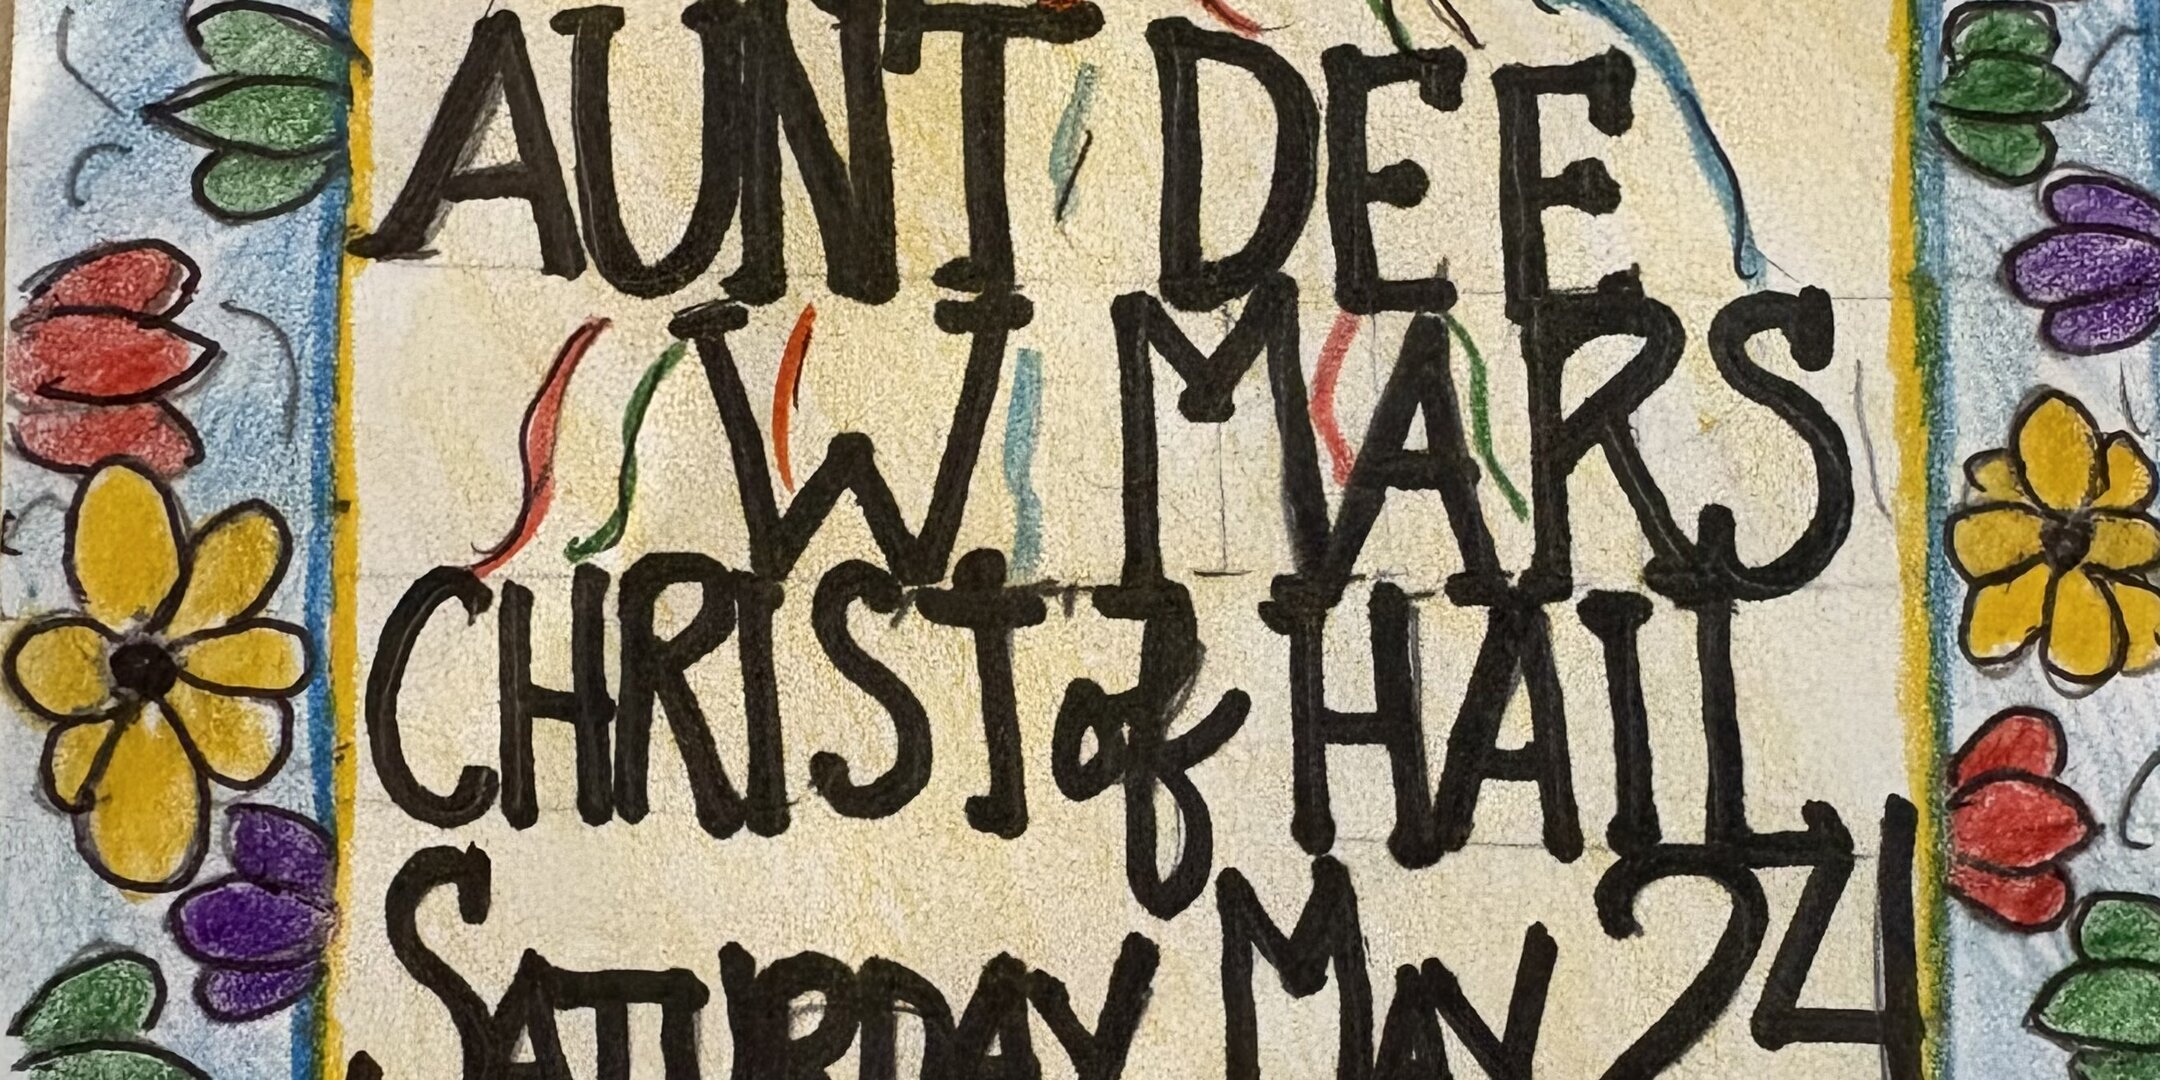 AUNT DEE
W MARS
CHRIST of HAIL
SATURDAY MAY 24